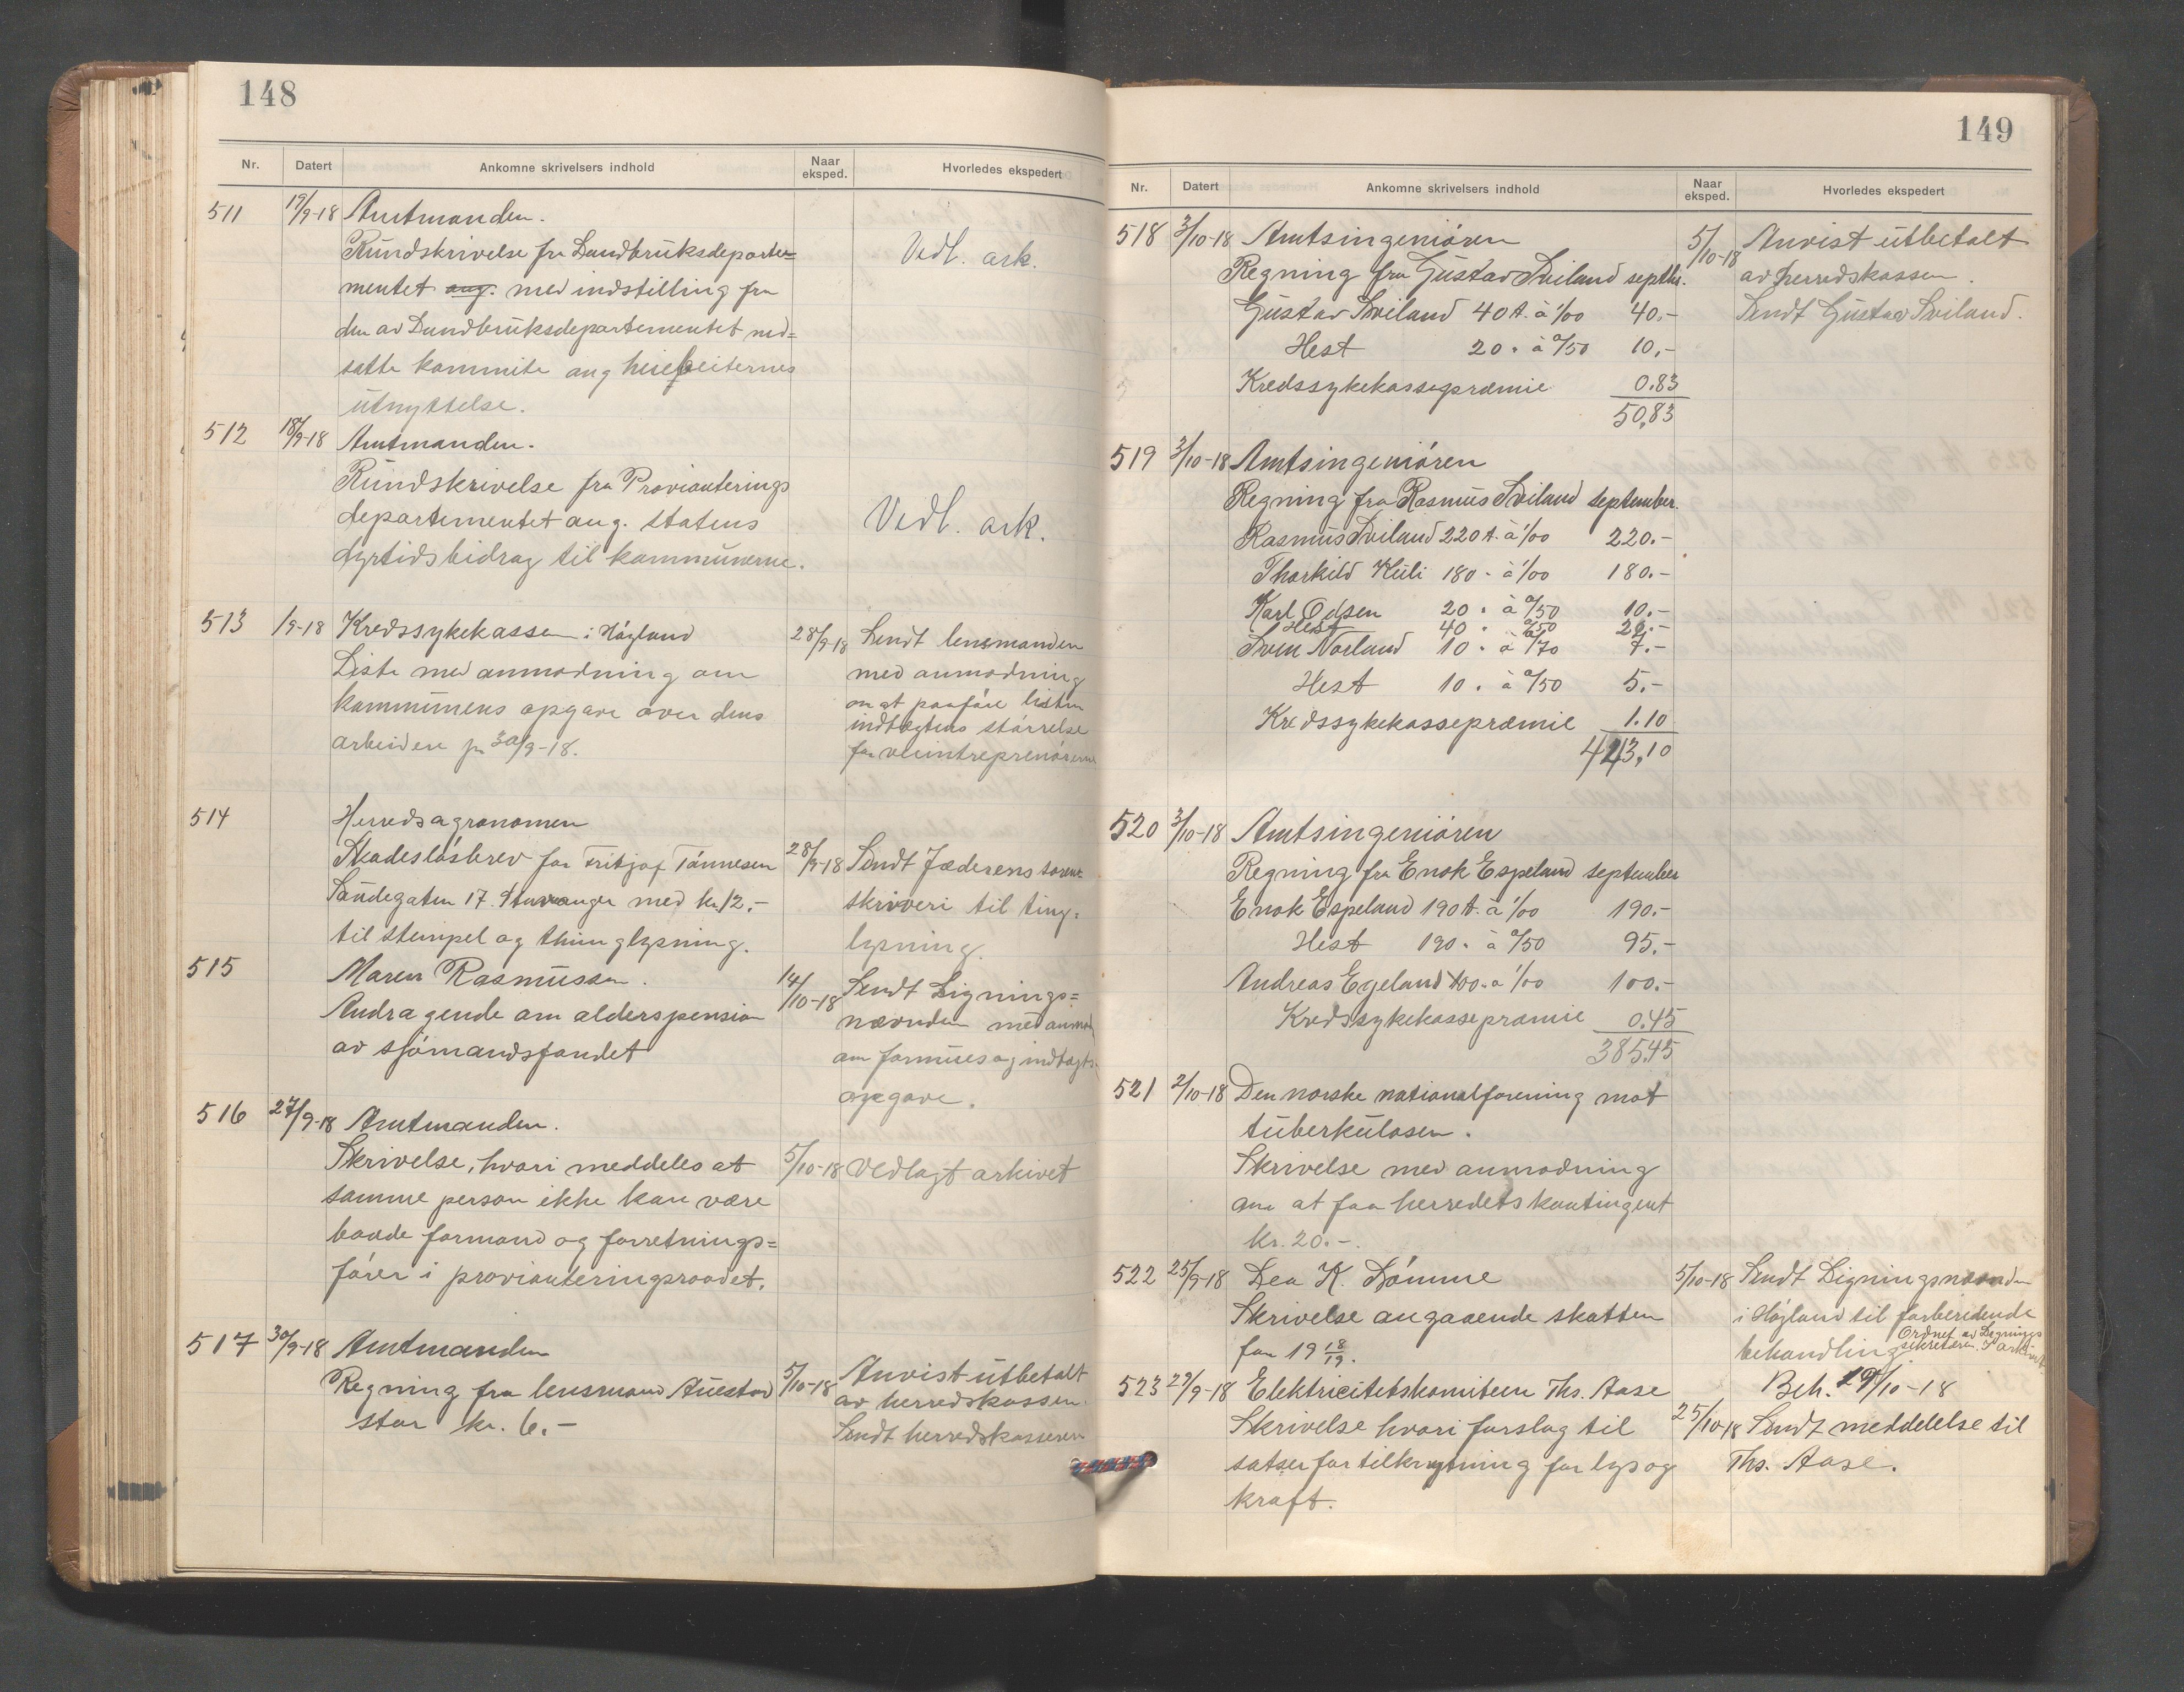 148
Nr. Datert Ankomne skrivelsers indhold Naar eksped. Hvorledes ekspedert
511 19/9-18 Amtmanden.
Rundskrivelse fra Landbruksdeparte=
mentet ang. med indstilling fra
den av Landbruksdepartementet ned=
satte kommite ang heiebeiternes
utnyttelse.
Vedl. ark.
512 18/9-18 Amtmanden.
Rundskrivelse fra Provianterings
departementet ang. statens
dyrtidsbidrag til kommunerne.
Vedl. ark.
513 1/9-18 Kredssykekassen i Høyland
Liste med anmodning om
kommunens opgave over dens
arbeidere pr 30/9-18.
28/9-18 Sendt lensmanden
med anmodning
om at paaføre listen
indtægtens størrelse
for veientreprenørerne
514 Herredsagronomen
Skadesløsbrev for Fritjof Tønnesen
Sandegaten 17. Stavanger med kr. 12,-
til stempel og thinglysning.
28/9-18 Sendt Jæderens soren-
skriveri til ting-
lysning.
515 Maren Rasmussen.
Andragende om alderspension
av sjømandsfondet
14/10-18 Sendt Lignings=
nævnden med anmod
om formues og indtægts-
opgave.
516 27/9-18 Amtmanden.
Skrivelse, hvori meddeles at
samme person ikke kan være
baade formand og forretnings=
fører i provianteringsraadet.
5/10-18 Vedlagt arkivet
517 30/9-18 Amtmanden
Regning fra lensmand Auestad
stor kr. 6.-
5/10-18 Anvist utbetalt
av herredskassen.
Sendt herredskasseren
149
Nr. Datert Ankomne skrivelsers indhold Naar eksped. Hvorledes ekspedert
518 3/10-18 Amtsingeniøren
Regning fra Gustav Sviland septbr.
Gustav Sviland 40 t. à 1/00 40.-
Hest 20 " à 0/50 10,-
Kredssykekassepræmie 0.83
50,83
5/10-18 Anvist utbetalt
av herredskassen.
Sendt Gustav Sviland.
519 3/10-18 Amtsingeniøren
Regning fra Rasmus Sviland september.
Rasmus Sviland 220 t. à 1/00 220.-
Thorkild Kuli 180 " à 1/00 180.-
Karl Odsen 20 " à 0/50 10.-
Hest 40 " 0/50 20.-
Sven Norland 10 " à 0/70 7.-
Hest 10 " à 0/50 5.-
Kredssykekassepræmie 1.10
423,10
520 3/10-18 Amtsingeniøren
Regning fra Enok Espeland september
Enok Espeland 190 t. à 1/00 190.-
Hest 190 " à 0/50 95.-
Andreas Egeland 100 " à 1/00 100.-
Kredssykekassepræmie 0.45
385.45
521 2/10-18 Den norske nationalforening mot
tuberkulosen.
Skrivelse med anmodning
om at faa herredets kontingent
kr. 20.-.
522 25/9-18 Lea K. Lømme
Skrivelse angaaende skatten
for 19 18/19.
5/10-18 Sendt Ligningsnævnden
i Høyland til forberedende
behandling Ordnet av Lignings
sekretæren. I arkivet
523 29/9-18 Elektricitetskomiteen Ths. Aase
Skrivelse hvori forslag til
satser for tilknytning for lys og
kraft.
Beh. 19/10-18
25/10-18 Sendt meddelelse til
Ths. Aase.